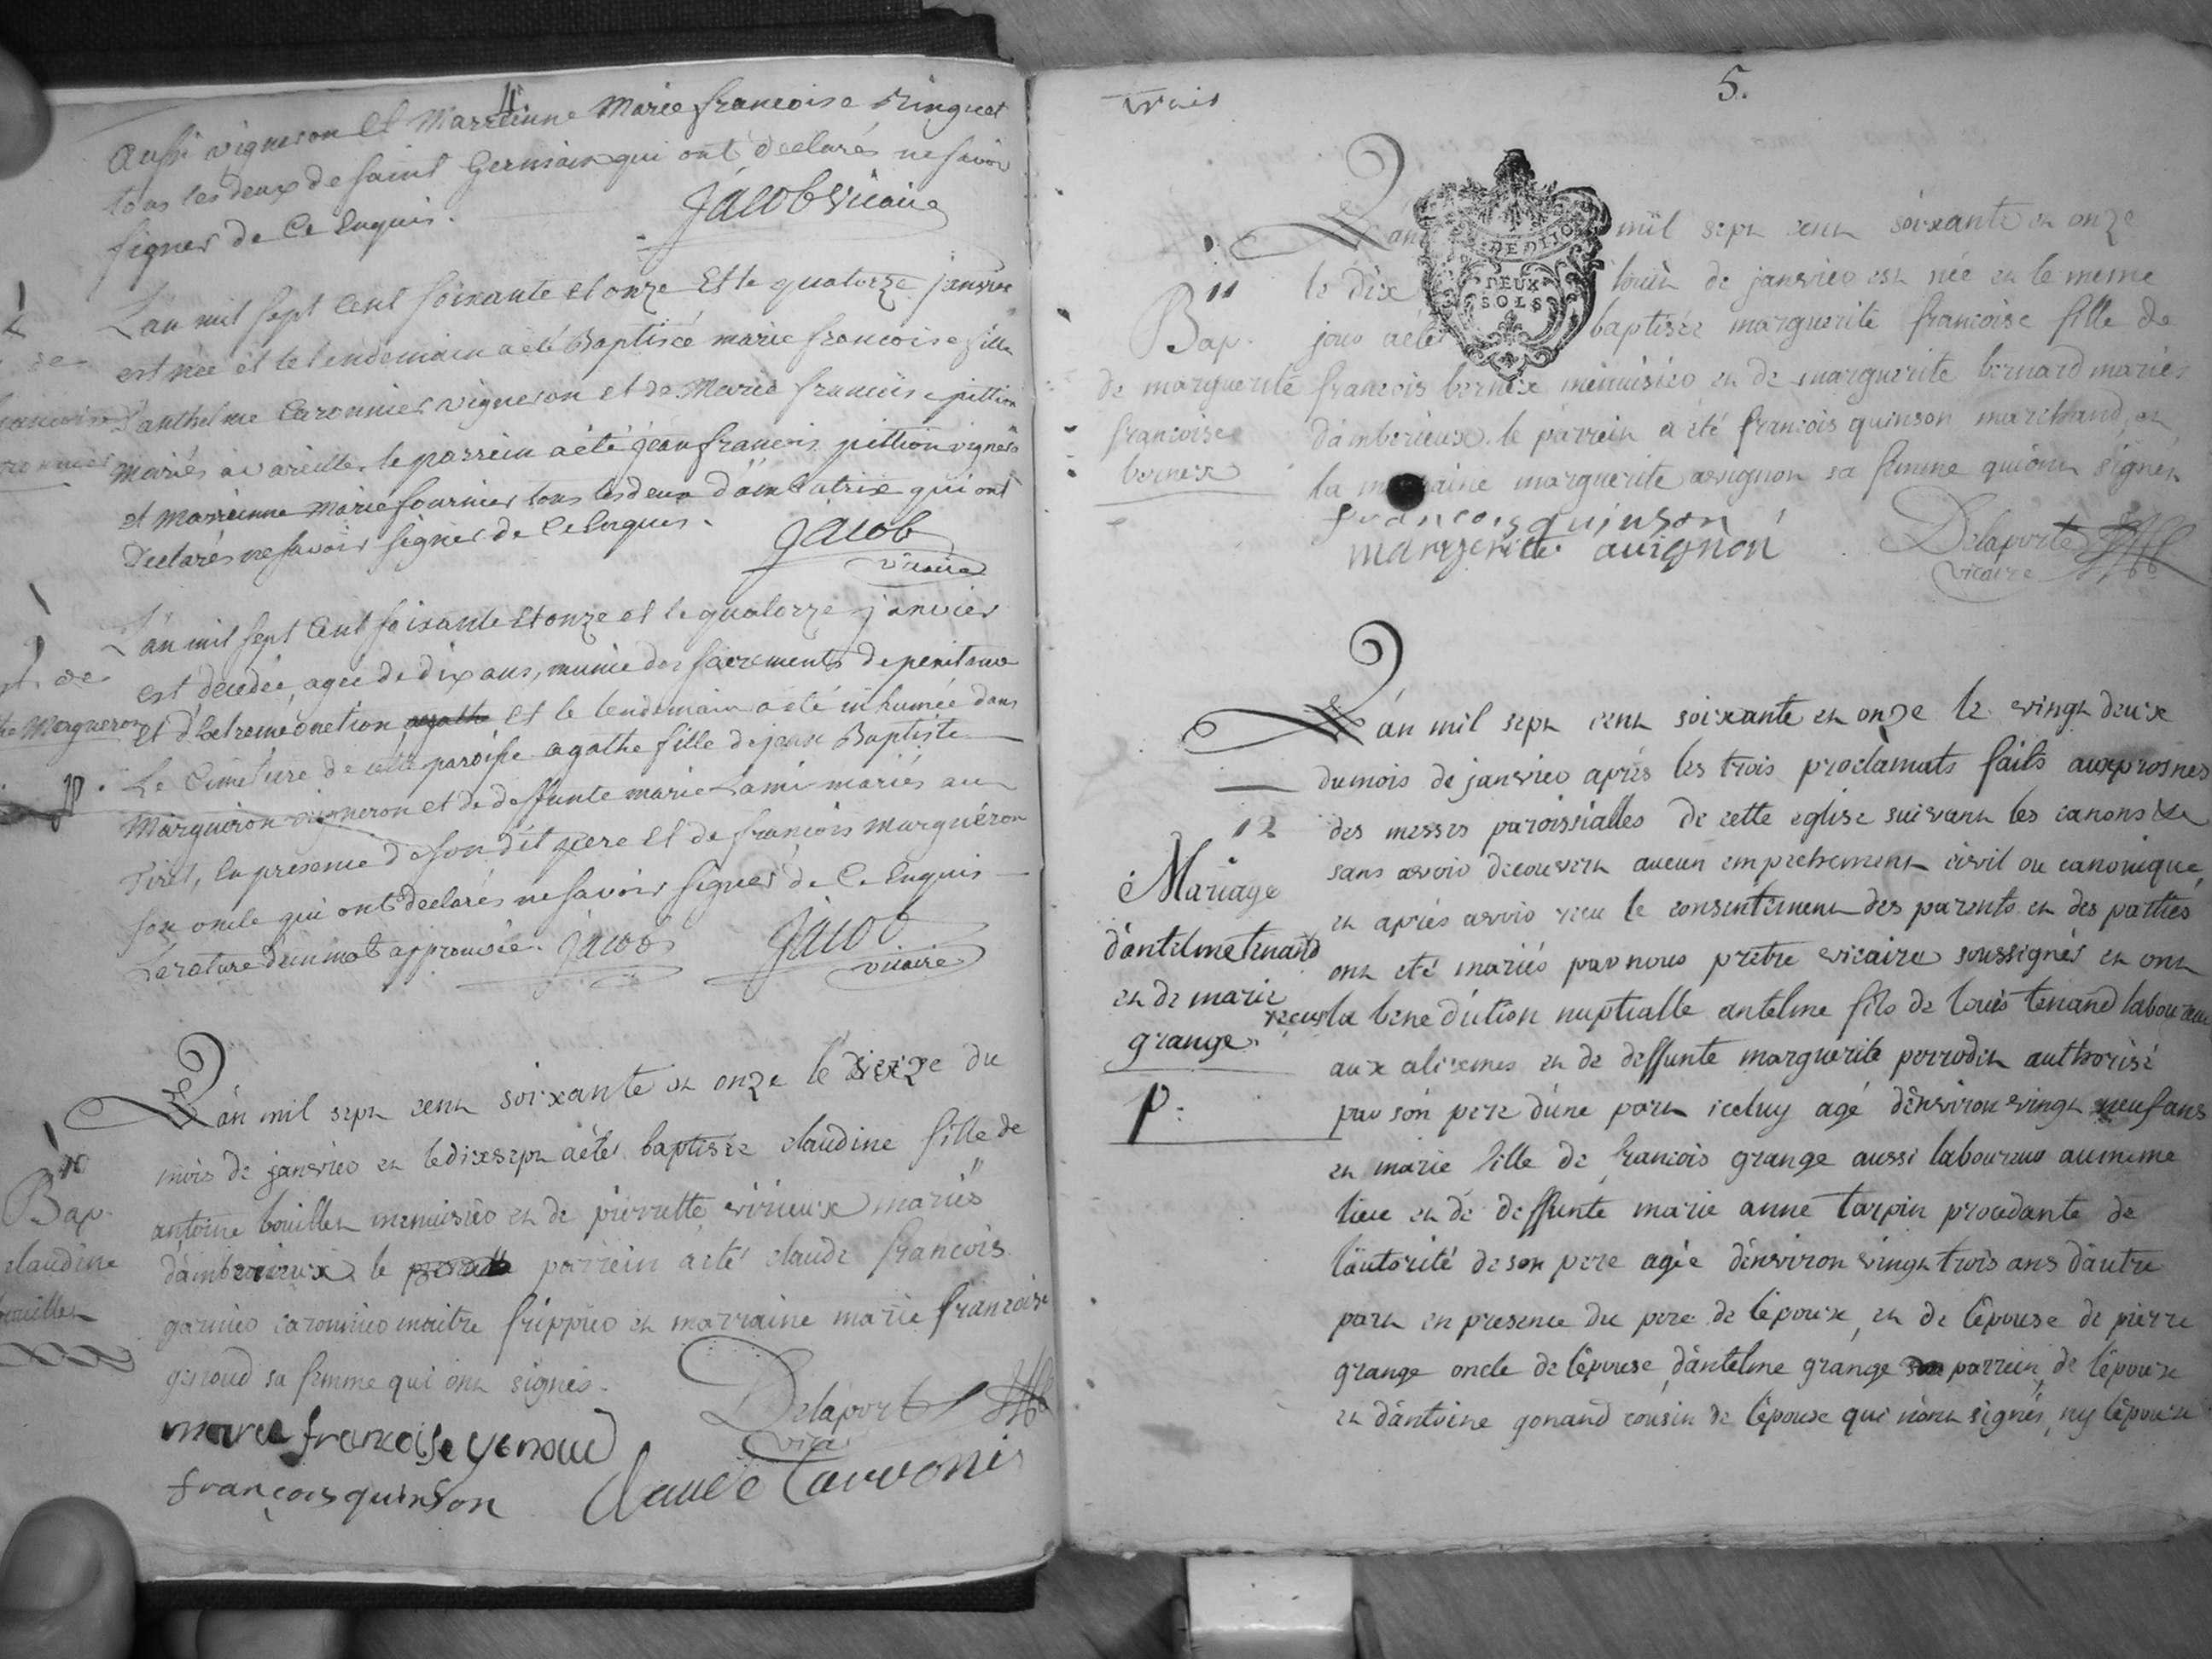 4.
Aussi vigneron et Marrienne Marie francoise Ringuet
tous les deux de saint Germain qui ont déclarés ne savoir
signer de ce Enquis.
Jacob vicaire
L'an mil sept cent soixante et onze et le quatorze janvier
est née et le lendemain a été Baptisée marie francoise fille
d'anthelme Caronnier vigneron et de Marie francoise pittion
mariés a vareille. le parrein a été jean francois pittion vigneron
et Marrienne marie fournier tous les deux d'ambutrix qui ont
déclarés ne savoir signer de ce Enquis.
Jacob
vicaire
L'an mil sept cent soixante et onze et le quatorze janvier
est décédée, agée de dix ans, munie des sacrements de penitence
et d'Extreme onction agathe et le lendemain a été inhumée dans
Le Cimetiere de cette paroisse agathe fille de jean Baptiste
Margueron vigneron et de deffunte marie Lami mariés au
Tiret, En presence de son dit pere et de françois marguéron
son oncle qui ont declarés ne savoir signer de Ce Enquis
La rature d'un mot approuvée. jacob
Jacob
vicaire
de
Margueron
L'án mil sept cent soixante et onze le seize du
mois de janvier et le dixsept a été baptisée claudine fille de
10
Bap.
claudine
bouillet
antoine bouillet menuisier et de pierrette virieux mariés
d'ambérieux. le parrein a été claude francois
garnier caronnier maitre frippier et marraine marie francoise
genoud sa femme qui ont signés.
Delaporte
vic.
marie francoise genoud
françois quinson
Claude Carronier
trois
5.
L'an mil sept cent soixante et onze
DE DIJON
DEUX
SOLS
le dix huit de janvier est née et le meme
jour a été baptisée marguerite francoise fille de
11
Bap.
de marguerite
francoise
bernex
francois bernex menuisier et de marguerite bernard mariés
d'amberieux. le parrein a été francois quinson marchand, et
la marraine marguerite avignon sa femme qui ont signés.
francois quinson
margerite avignon
Delaporte
vicaire
L'án mil sept cent soixante et onze le vingt deux
du mois de janvier aprés les trois proclamats faits aux prosnes
des messes paroissialles de cette eglise suivant les canons
sans avoir decouvert aucun empechement civil ou canonique,
et aprés avoir reçu le consentement des parents et des parties
ont été mariés par nous prêtre vicaire soussignés et ont
reçus la benediction nuptialle antelme fils de louis tenand laboureur
12
Mariage
d'antelme tenand
et de marie
grange
p.
aux alixmes et de deffunte marguerite perrodet authorisé
par son pere d'une part iceluy agé d'environ vingt neuf ans
et marie fille de francois grange aussi laboureur au meme
lieu et de deffunte marie anne tarpin procedante de
l'autorité de son pere agée d'environ vingt trois ans d'autre
part en presence du pere de l'epoux, et de l'epouse de pierre
grange oncle de l'epouse, d'antelme grange parrein de l'epouse
et d'antoine gonand cousin de l'epoux qui n'ont signés, ny l'epoux